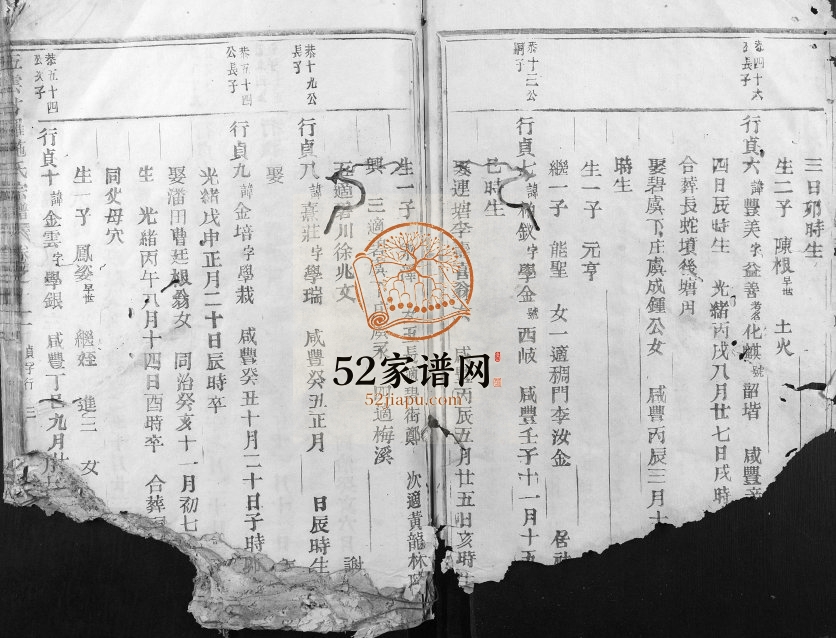 三日卯時生
生二子 陳根 早世 土火
恭四十六
公長子
行貞六 諱豐美 字益善 考名化麒 號韶堦 咸豐辛
四日辰時生 光緒丙戌八月廿七日戌時
合葬長蛇墳後塘
娶碧虞下庄虞成鍾公女 咸豐丙辰三月十
時生
生一子 元亨
繼一子 能聖 女一適稠門李汝金 居
恭十三公
嗣子
行貞七 諱 欽 字學金 號西岐 咸豐壬子十一月十五
巳時生
娶連塘李 丙辰五月廿五日亥時
生一子 長適 街鄭 次適黃龍林
興 三適 適梅溪
適 川徐兆文
恭十九公
長子
行貞八 諱熹莊 字學瑞 咸豐癸丑正月 日辰時生
娶 謝
恭五十四
公長子
行貞九 諱金培 字學栽 咸豐癸丑十月二十日子時
光緒戊申正月二十日辰時卒
娶潘田曹廷根 女 同治癸亥十一月初七
生 光緒丙午八月十四日酉時卒 合葬
同父母穴
恭五十四
公次子
行貞十 諱金雲 字學銀 咸豐丁巳九月廿
生一子 鳳姿 早世 繼姪 進三 女
五雲 氏宗譜 貞字行 三
52家谱网
52jiapu.com